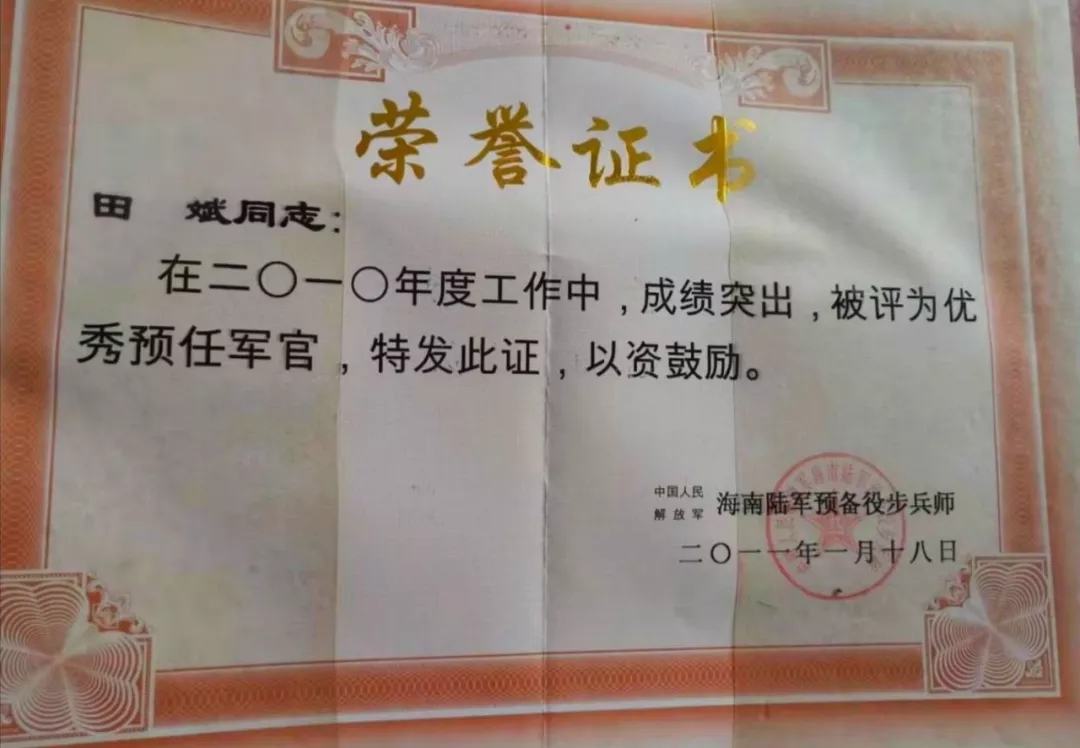 荣誉证书
田 斌同志：
在二〇一〇年度工作中，成绩突出，被评为优
秀预任军官，特发此证，以资鼓励。
中国人民
解放军
海南陆军预备役步兵师
二〇一一年一月十八日